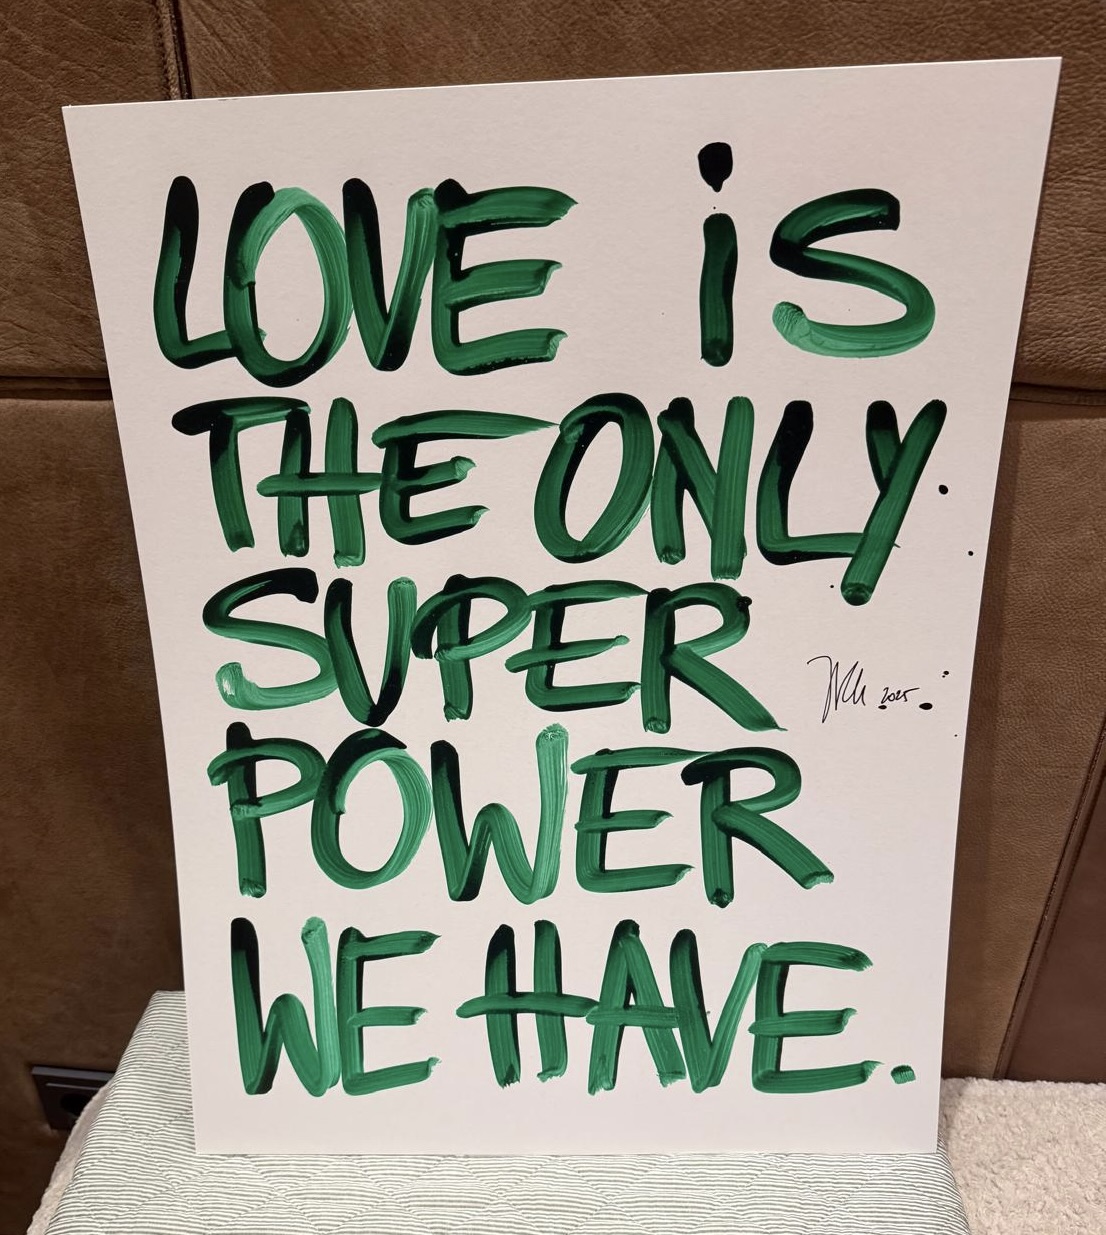 LOVE iS
THE ONLY
SUPER
POWER
WE HAVE.
2025